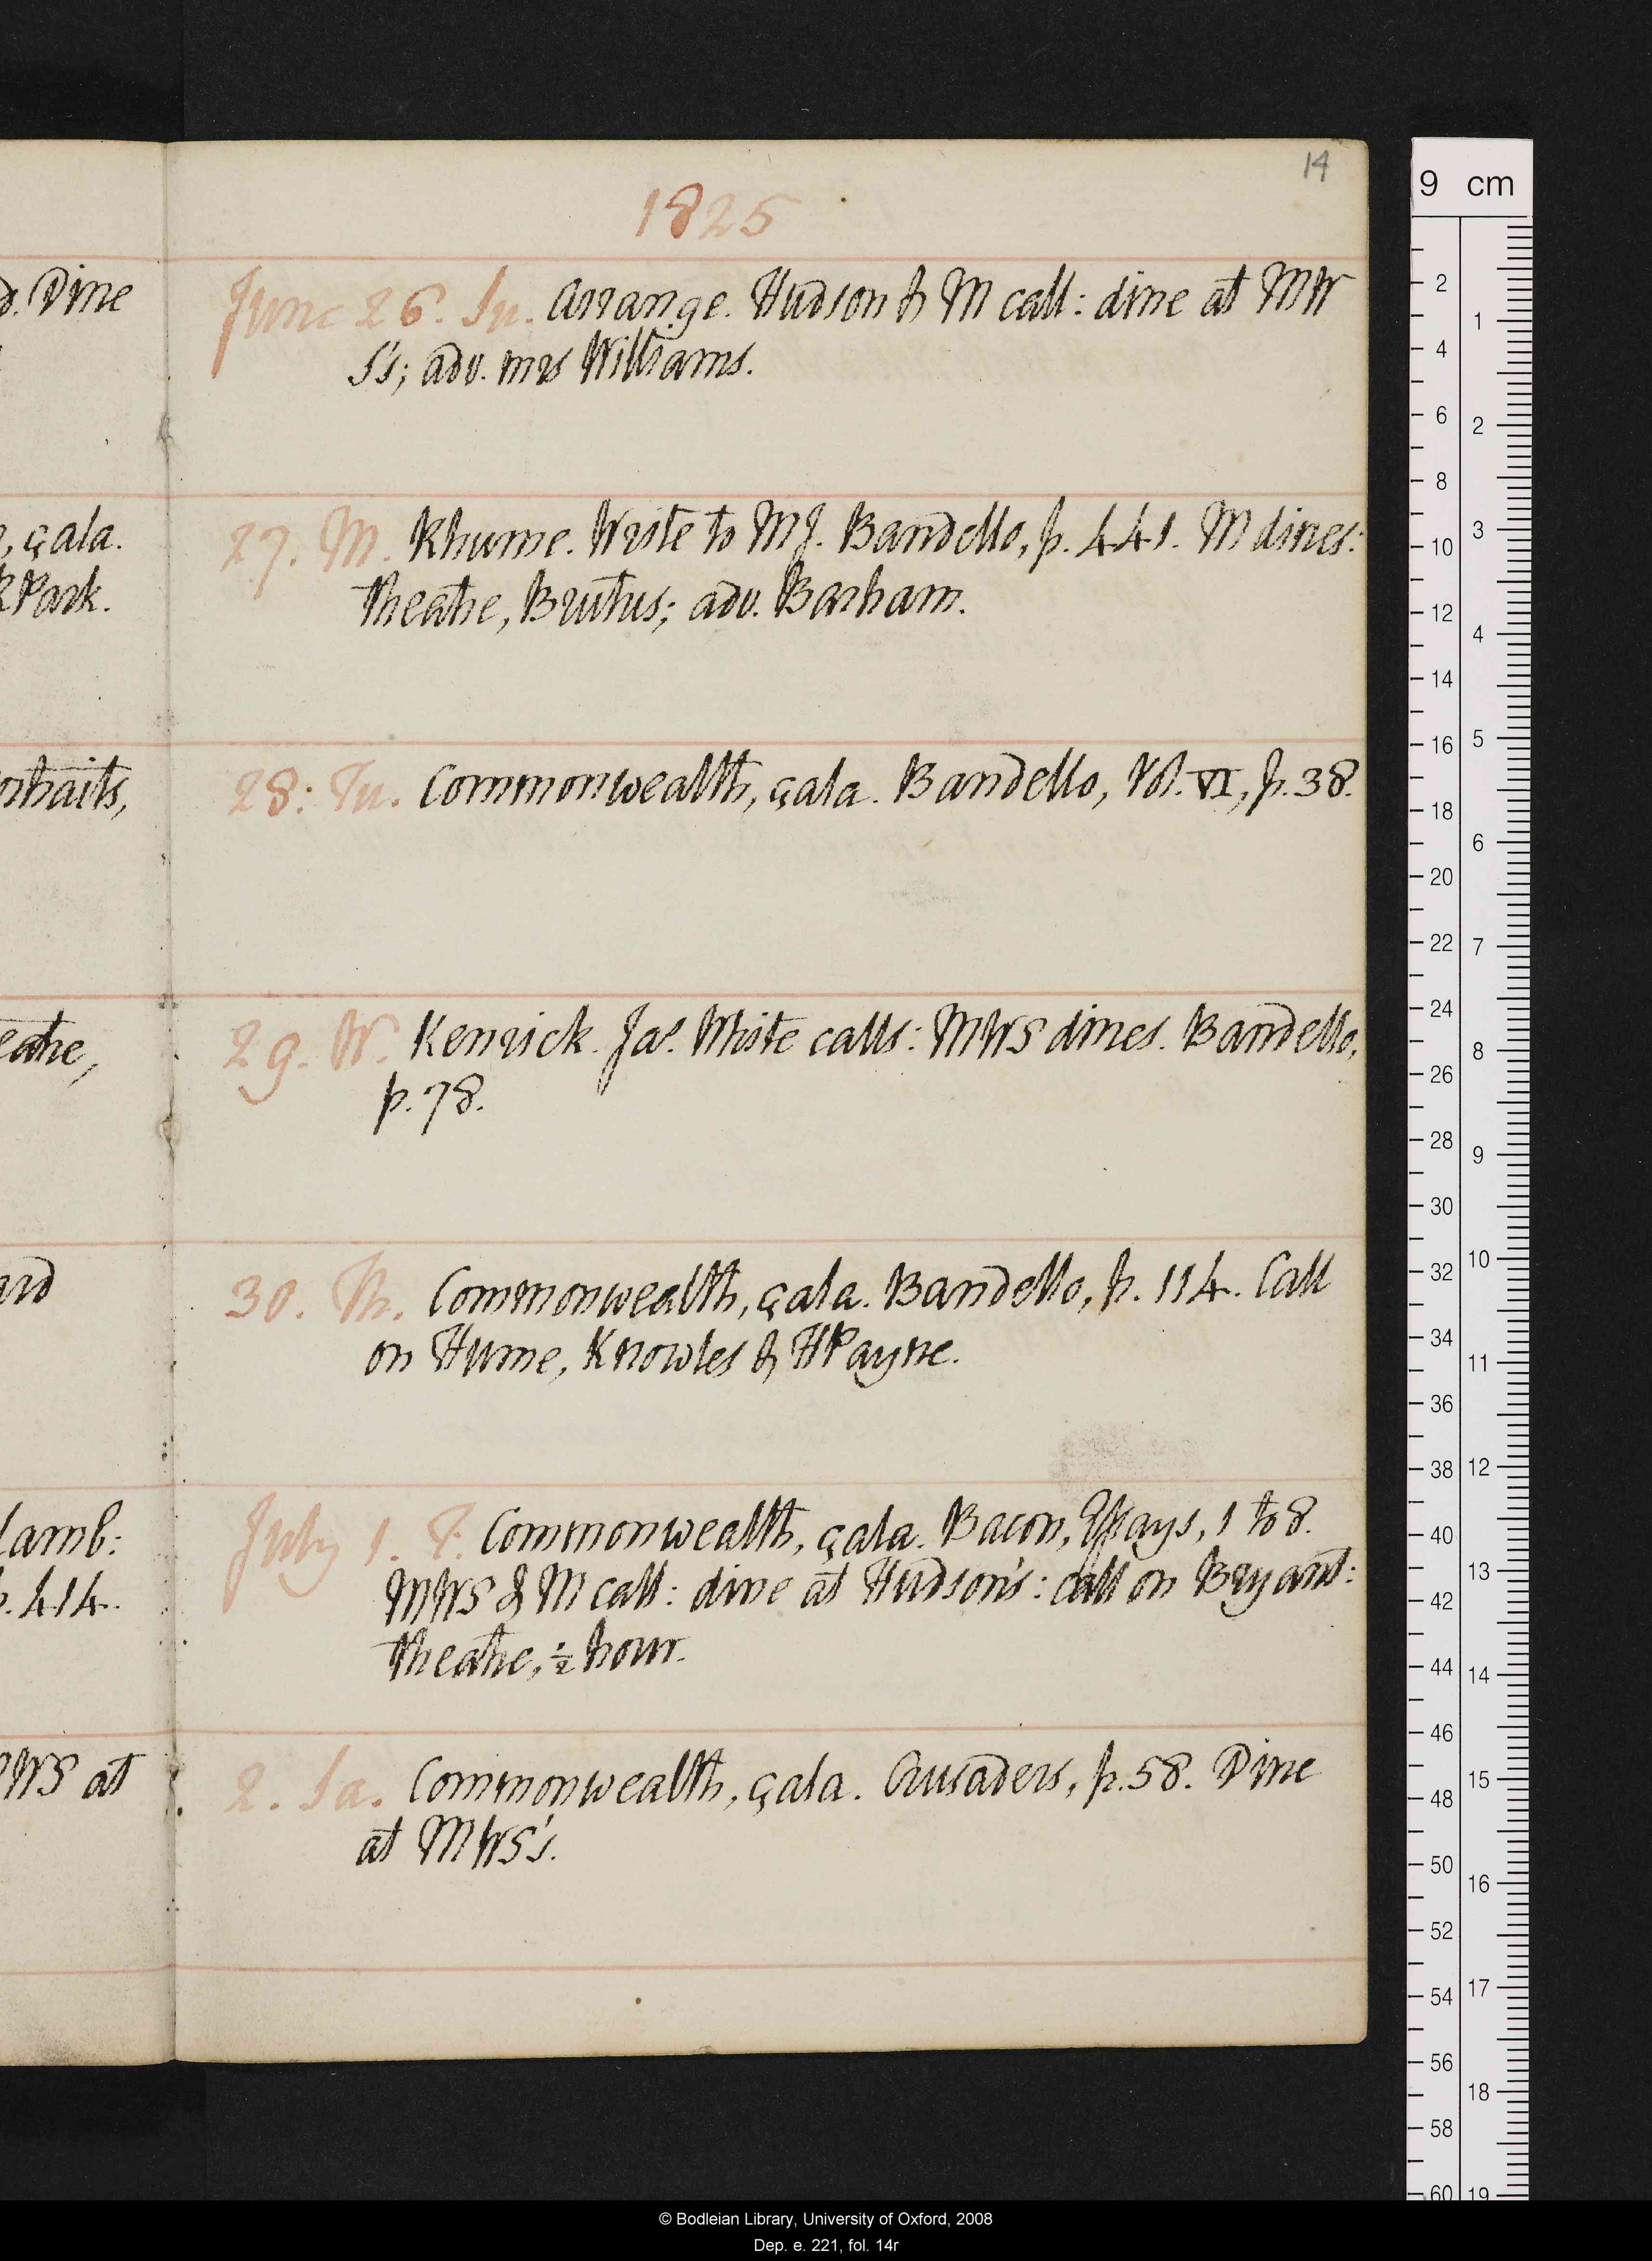 14
1825
d. Dine
June 26. Su. Arrange. Hudson & M call: dine at MW
S's; adv. Mrs Williams.
, çala.
Park.
27. M. Rhume. Write to MJ. Bandello, p. 441. M dines:
theatre, Brutus; adv. Barham.
ortraits,
28: Tu. Commonwealth, çala. Bandello, Vol. VI, p. 38.
eatre,
29. W. Kenrick. Jas White calls: MWS dines. Bandello,
p. 78.
ard
30. Th. Commonwealth, çala. Bandello, p. 114. Call
on Hume, Knowles & HPayne.
Lamb:
p. 414.
July 1. F. Commonwealth, çala. Bacon, Essays, 1 to 8.
MWS & M call: dine at Hudson's: call on Bryant:
theatre, ½ hour.
WS at
2. Sa. Commonwealth, çala. Crusaders, p. 58. Dine
at MWS's.
9 cm
2
4
6
8
10
12
14
16
18
20
22
24
26
28
30
32
34
36
38
40
42
44
46
48
50
52
54
56
58
60
1
2
3
4
5
6
7
8
9
10
11
12
13
14
15
16
17
18
19
© Bodleian Library, University of Oxford, 2008
Dep. e. 221, fol. 14r